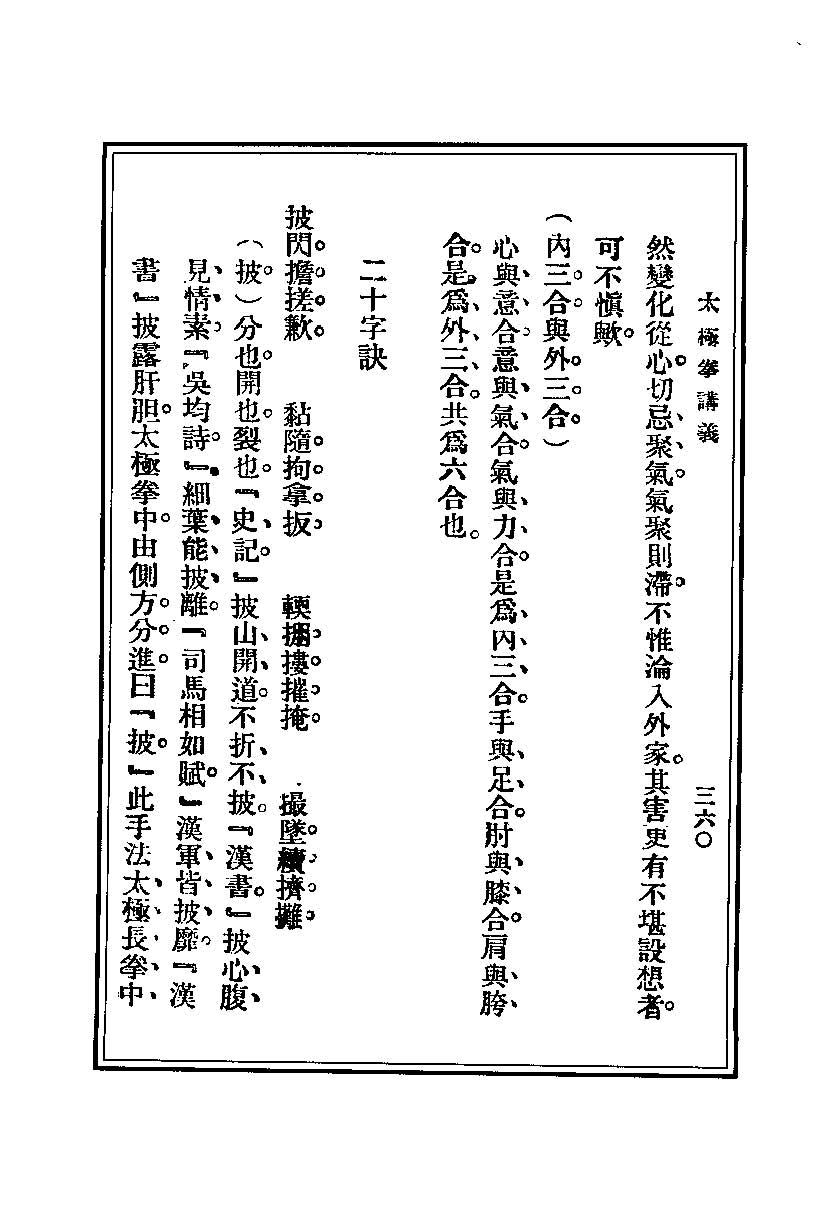 太極拳講義
三六〇
然變化從心。切忌聚氣。氣聚則滯。不惟淪入外家。其害更有不堪設想者。
可不愼歟。
（內三合與外三合）
心與意合。意與氣合。氣與力合。是爲內三合。手與足合。肘與膝合。肩與胯
合。是爲外三合。共爲六合也。
二十字訣
披閃擔搓歉　黏隨拘拿扳　輭掤摟摧掩　撮墜續擠攤
（披）分也。開也。裂也。『史記』披山開道。不折不披。『漢書』披心腹
見情素。『吳均詩』細葉能披離。『司馬相如賦』漢軍皆披靡。『漢
書』披露肝胆。太極拳中。由側方分進。曰『披』此手法、太極長拳中、